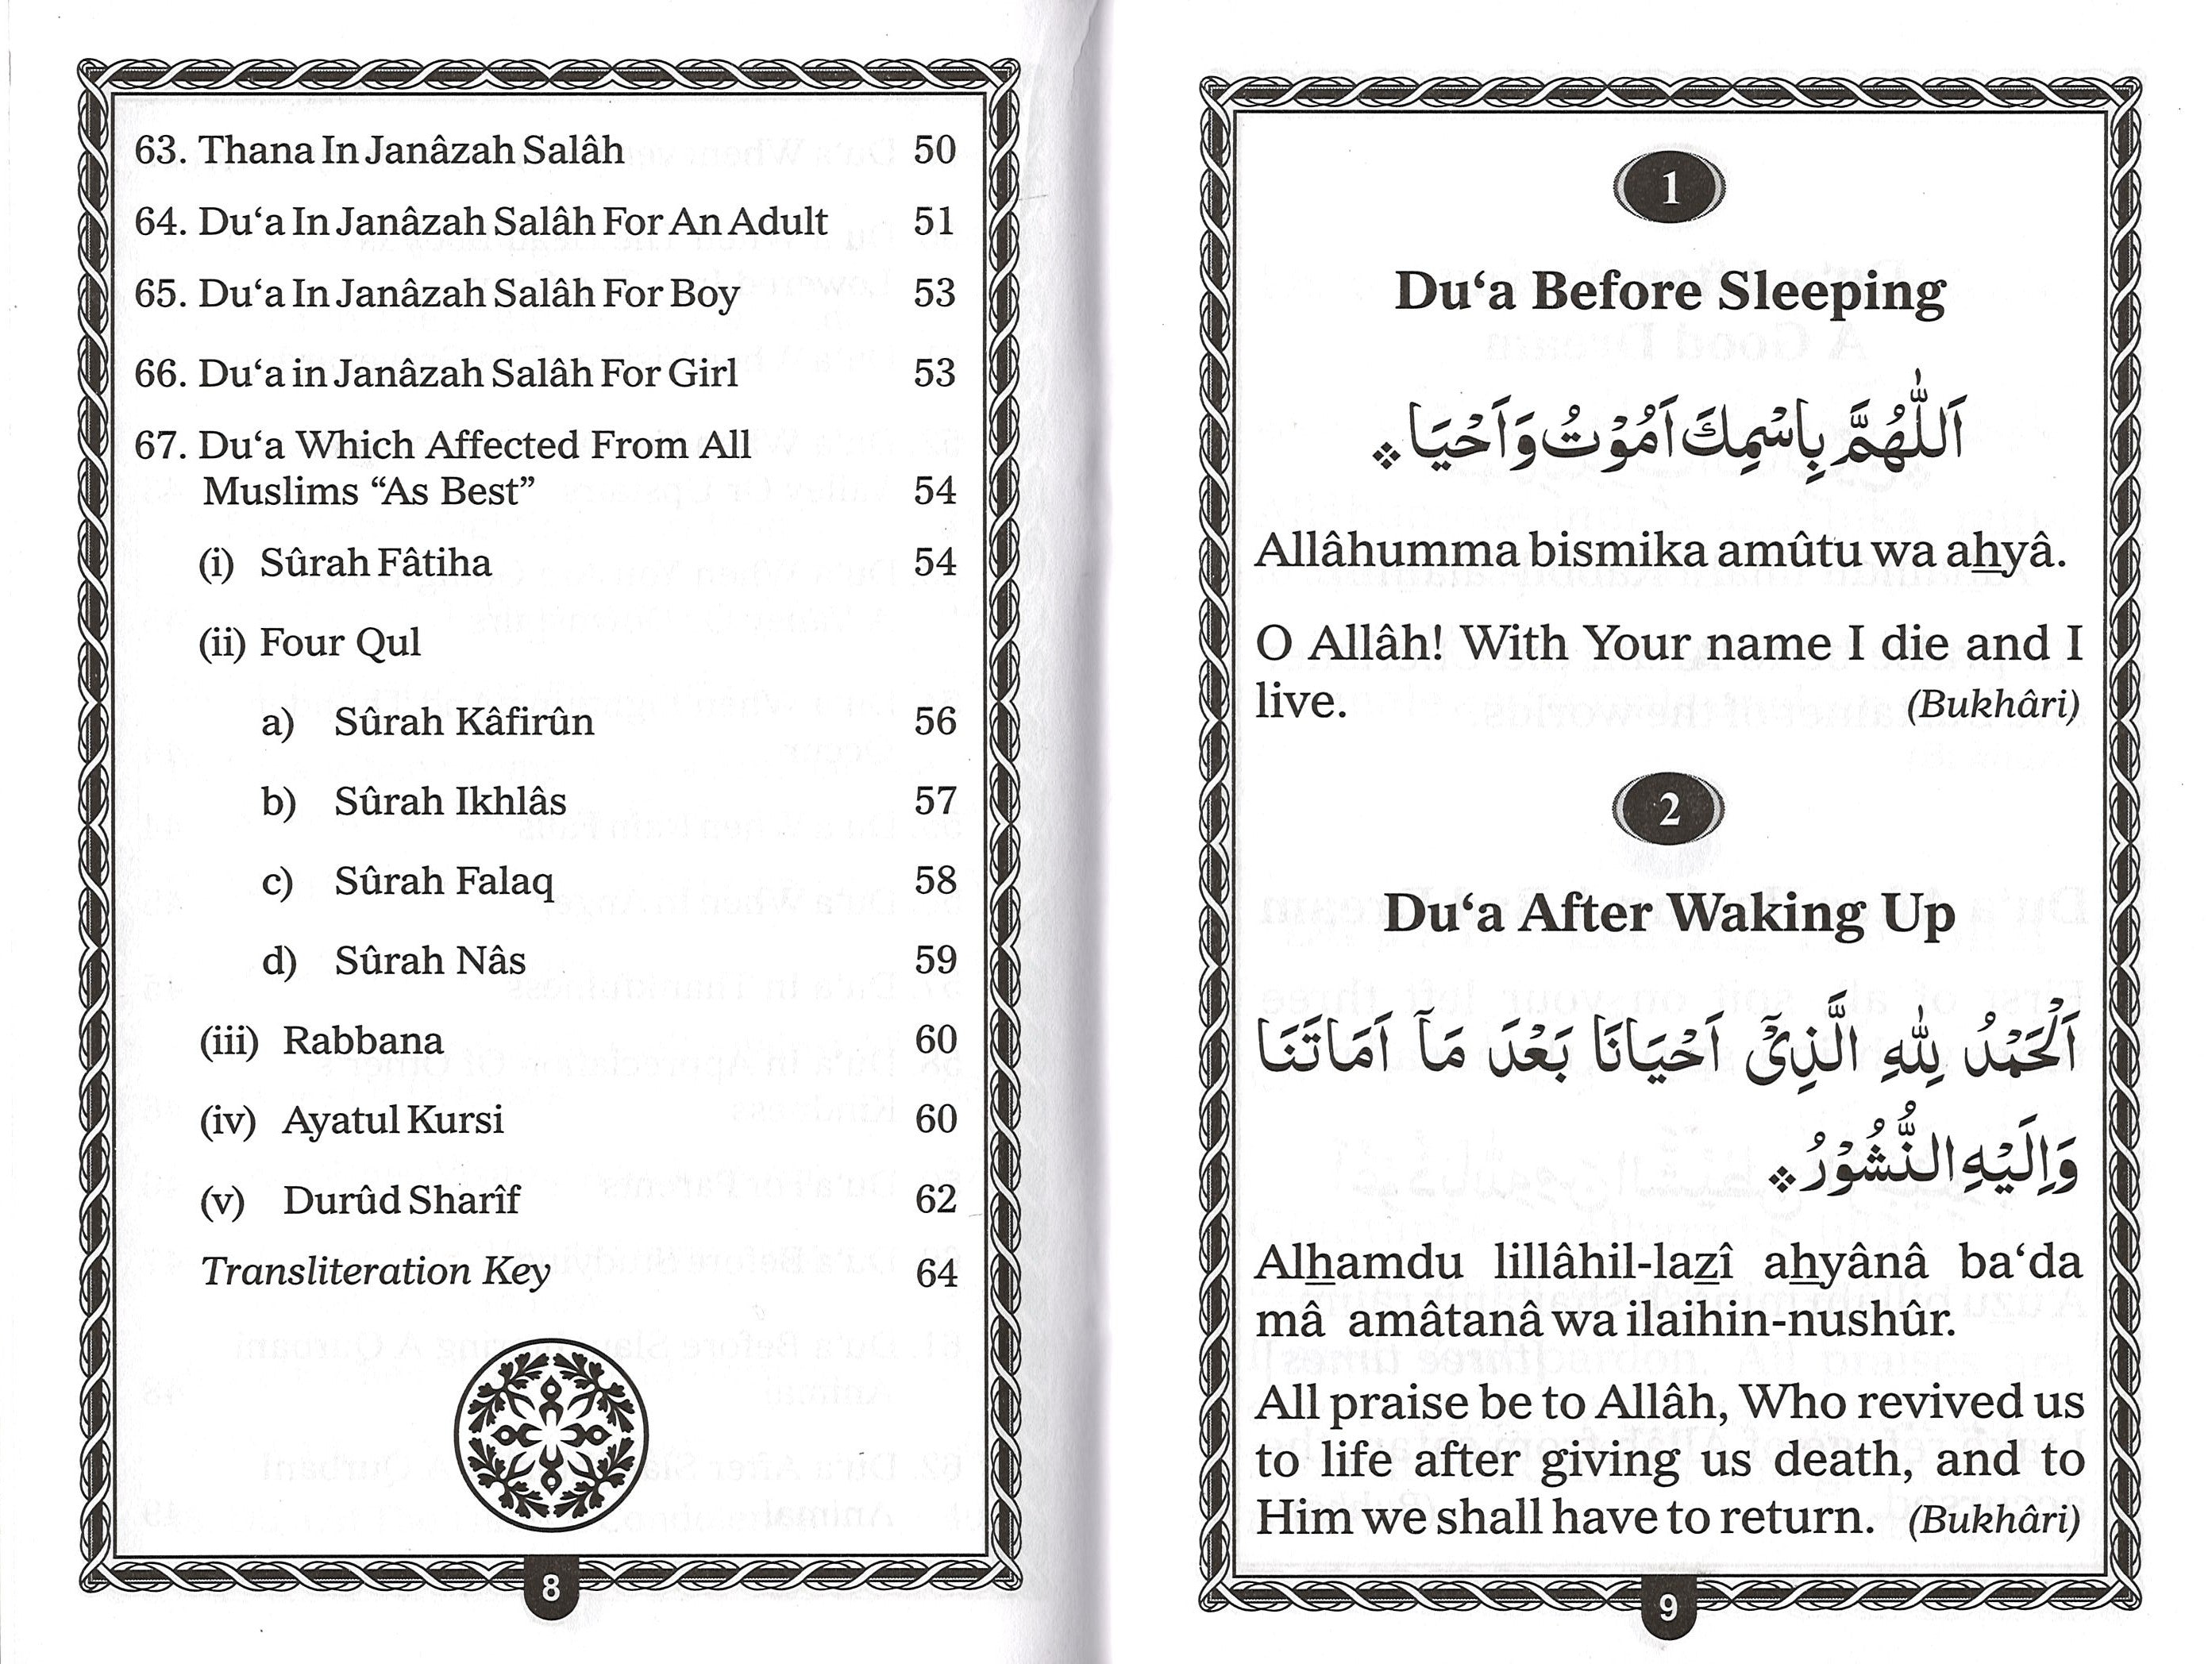 63. Thana In Janâzah Salâh 50
64. Du‘a In Janâzah Salâh For An Adult 51
65. Du‘a In Janâzah Salâh For Boy 53
66. Du‘a in Janâzah Salâh For Girl 53
67. Du‘a Which Affected From All
Muslims “As Best” 54
(i) Sûrah Fâtiha 54
(ii) Four Qul
a) Sûrah Kâfirûn 56
b) Sûrah Ikhlâs 57
c) Sûrah Falaq 58
d) Sûrah Nâs 59
(iii) Rabbana 60
(iv) Ayatul Kursi 60
(v) Durûd Sharîf 62
Transliteration Key 64
8
1
Du‘a Before Sleeping
اَللّٰهُمَّ بِاسْمِكَ اَمُوْتُ وَاَحْيَا
Allâhumma bismika amûtu wa ahyâ.
O Allâh! With Your name I die and I
live. (Bukhâri)
2
Du‘a After Waking Up
اَلْحَمْدُ لِلّٰهِ الَّذِيْٓ اَحْيَانَا بَعْدَ مَآ اَمَاتَنَا
وَاِلَيْهِ النُّشُوْرُ
Alhamdu lillâhil-lazî ahyânâ ba‘da
mâ amâtanâ wa ilaihin-nushûr.
All praise be to Allâh, Who revived us
to life after giving us death, and to
Him we shall have to return. (Bukhâri)
9